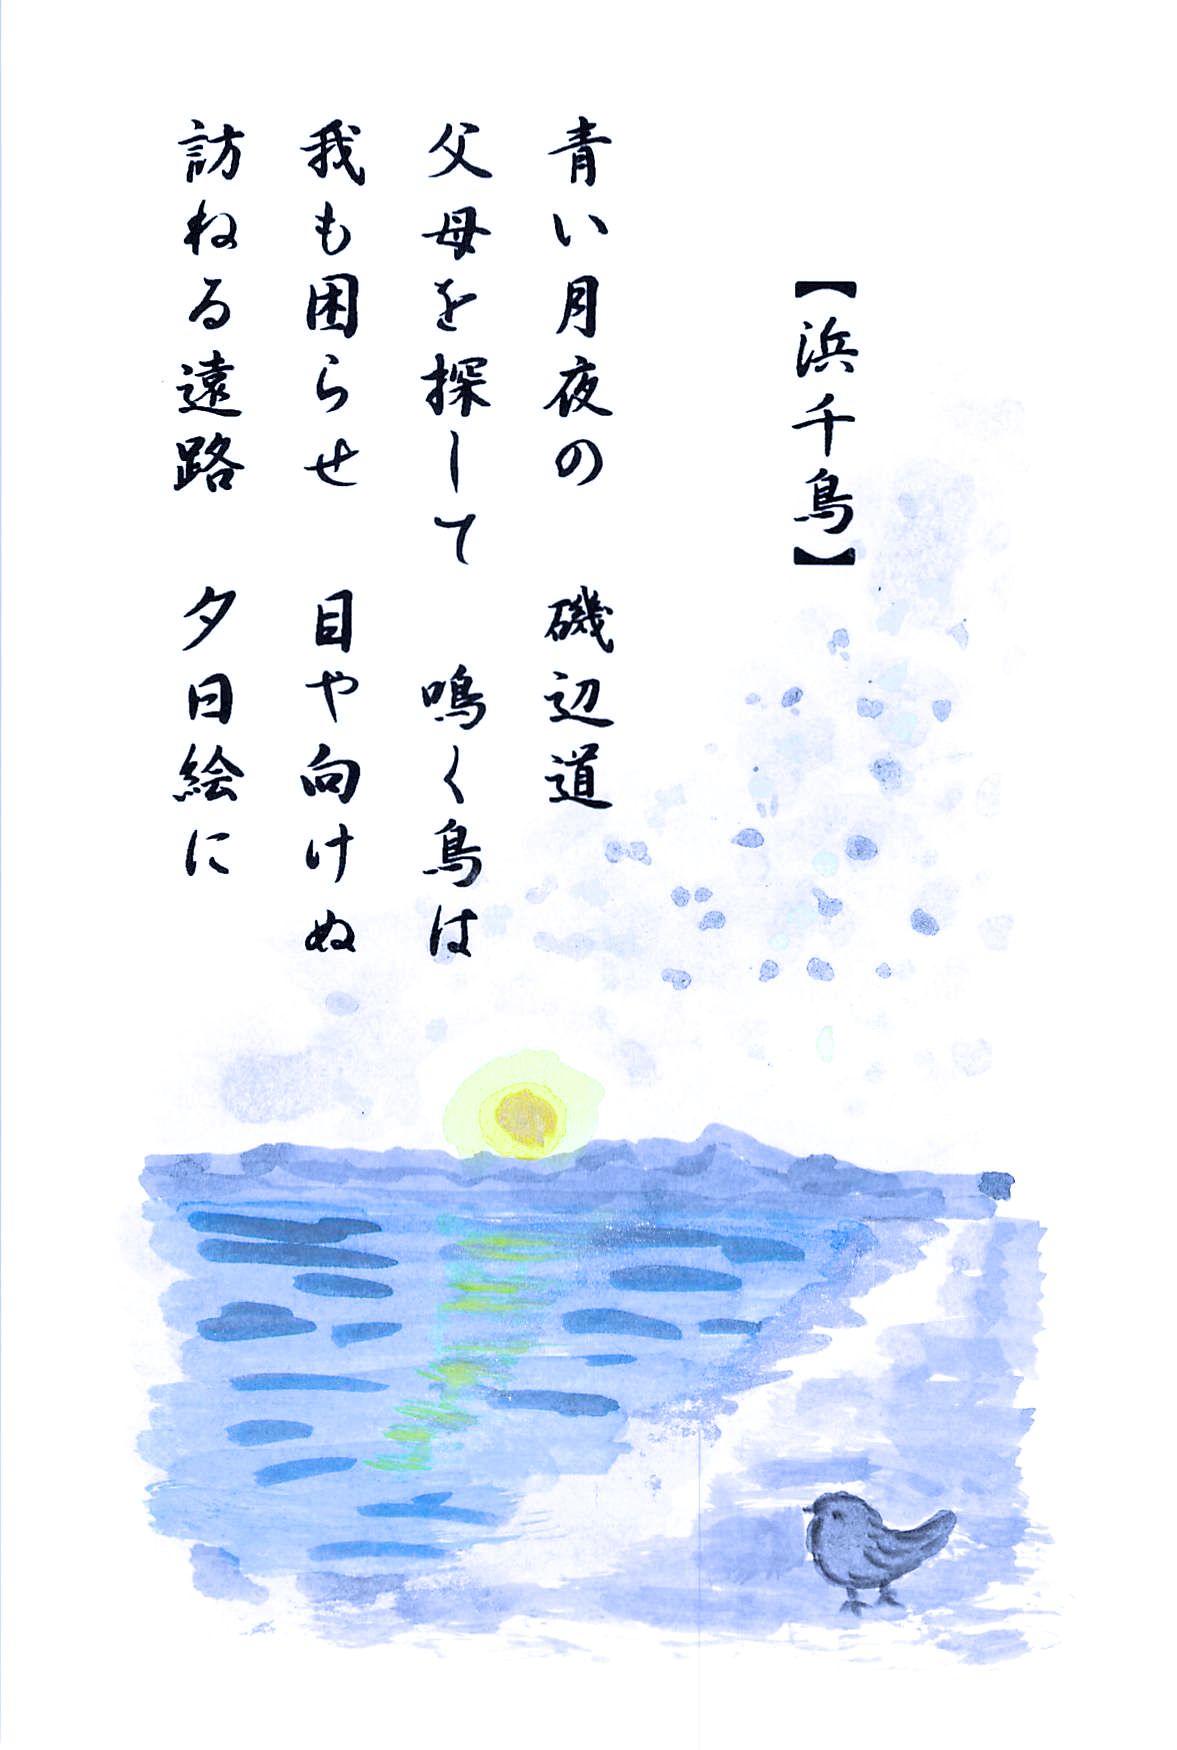 【浜千鳥】
青い月夜の　磯辺道
父母を探して　鳴く鳥は
我も困らせ　目や向けぬ
訪ねる遠路　夕日絵に